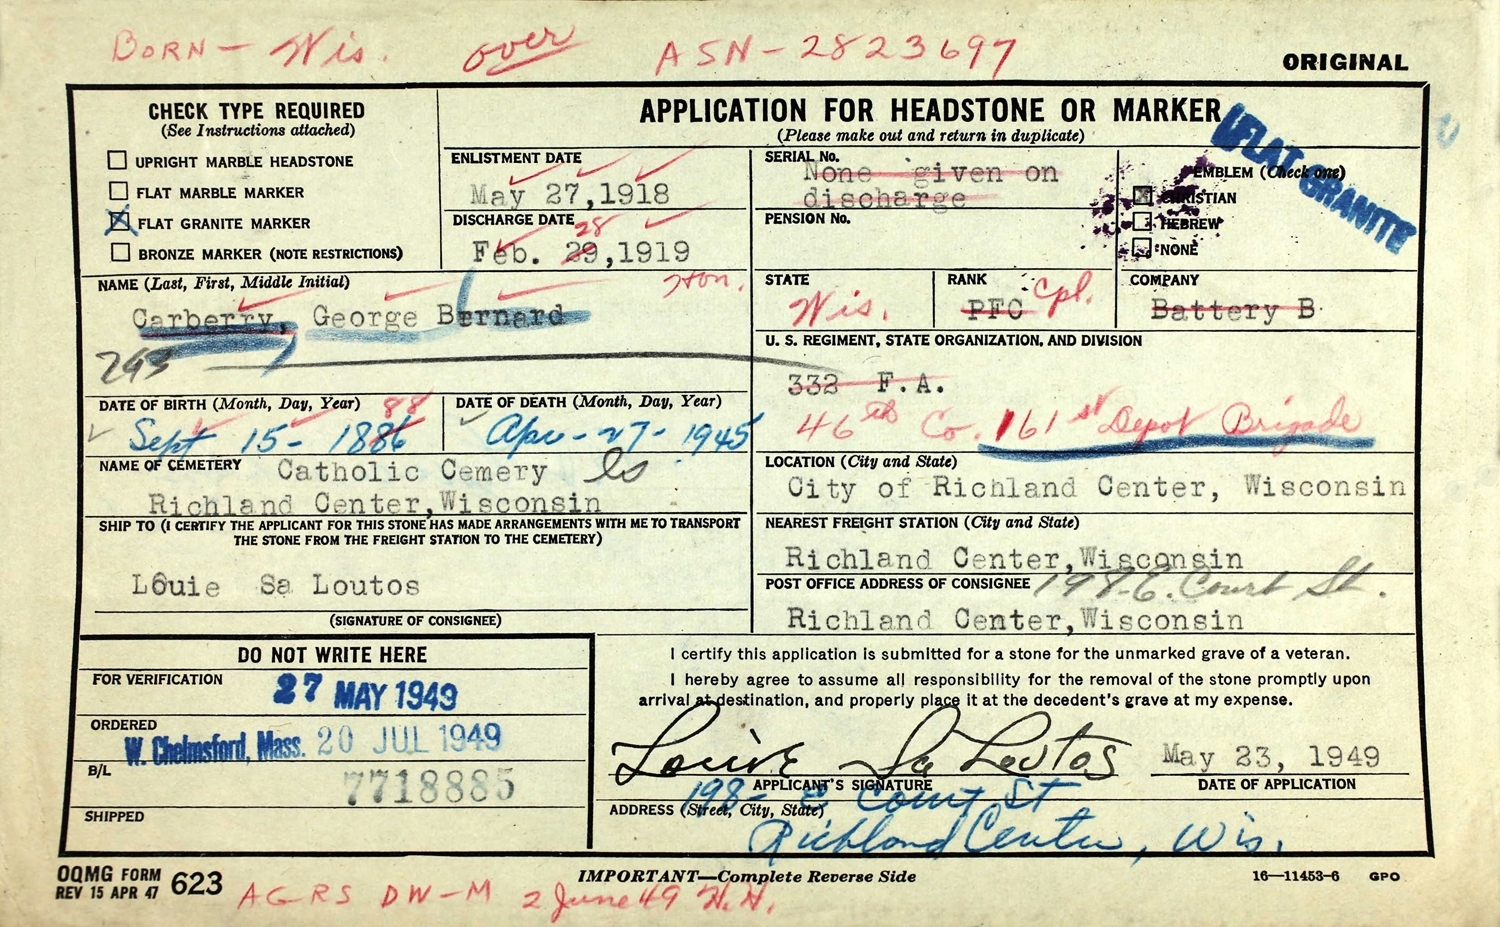 BORN - Wis. over ASN-2823697
ORIGINAL
CHECK TYPE REQUIRED
(See Instructions attached)
UPRIGHT MARBLE HEADSTONE
FLAT MARBLE MARKER
X FLAT GRANITE MARKER
BRONZE MARKER (NOTE RESTRICTIONS)
APPLICATION FOR HEADSTONE OR MARKER
(Please make out and return in duplicate)
FLAT GRANITE
ENLISTMENT DATE
May 27,1918
DISCHARGE DATE
28
Feb. 29,1919
SERIAL No.
None given on
discharge
PENSION No.
EMBLEM (Check one)
X CHRISTIAN
HEBREW
NONE
NAME (Last, First, Middle Initial)
Hon.
Carberry, George Bernard
293
STATE
Wis.
RANK
PFC Cpl.
COMPANY
Battery B
U. S. REGIMENT, STATE ORGANIZATION, AND DIVISION
332 F.A.
46th Co. 161st Depot Brigade
DATE OF BIRTH (Month, Day, Year)
88
Sept 15- 1886
DATE OF DEATH (Month, Day, Year)
Apr-27-1945
NAME OF CEMETERY Catholic Cemery
Richland Center,Wisconsin
LOCATION (City and State)
City of Richland Center, Wisconsin
SHIP TO (I CERTIFY THE APPLICANT FOR THIS STONE HAS MADE ARRANGEMENTS WITH ME TO TRANSPORT
THE STONE FROM THE FREIGHT STATION TO THE CEMETERY)
Louie Sa Loutos
(SIGNATURE OF CONSIGNEE)
NEAREST FREIGHT STATION (City and State)
Richland Center,Wisconsin
POST OFFICE ADDRESS OF CONSIGNEE 198-E. Court St.
Richland Center,Wisconsin
DO NOT WRITE HERE
FOR VERIFICATION
27 MAY 1949
ORDERED
W. Chelmsford, Mass. 20 JUL 1949
B/L
7718885
SHIPPED
I certify this application is submitted for a stone for the unmarked grave of a veteran.
I hereby agree to assume all responsibility for the removal of the stone promptly upon
arrival at destination, and properly place it at the decedent's grave at my expense.
Louie Sa Loutos May 23, 1949
APPLICANT'S SIGNATURE DATE OF APPLICATION
198- E Court St
ADDRESS (Street, City, State)
Richland Center, Wis.
OQMG FORM
REV 15 APR 47 623
IMPORTANT—Complete Reverse Side
16—11453-6 GPO
AGRS DW-M 2 June 49 H.H.